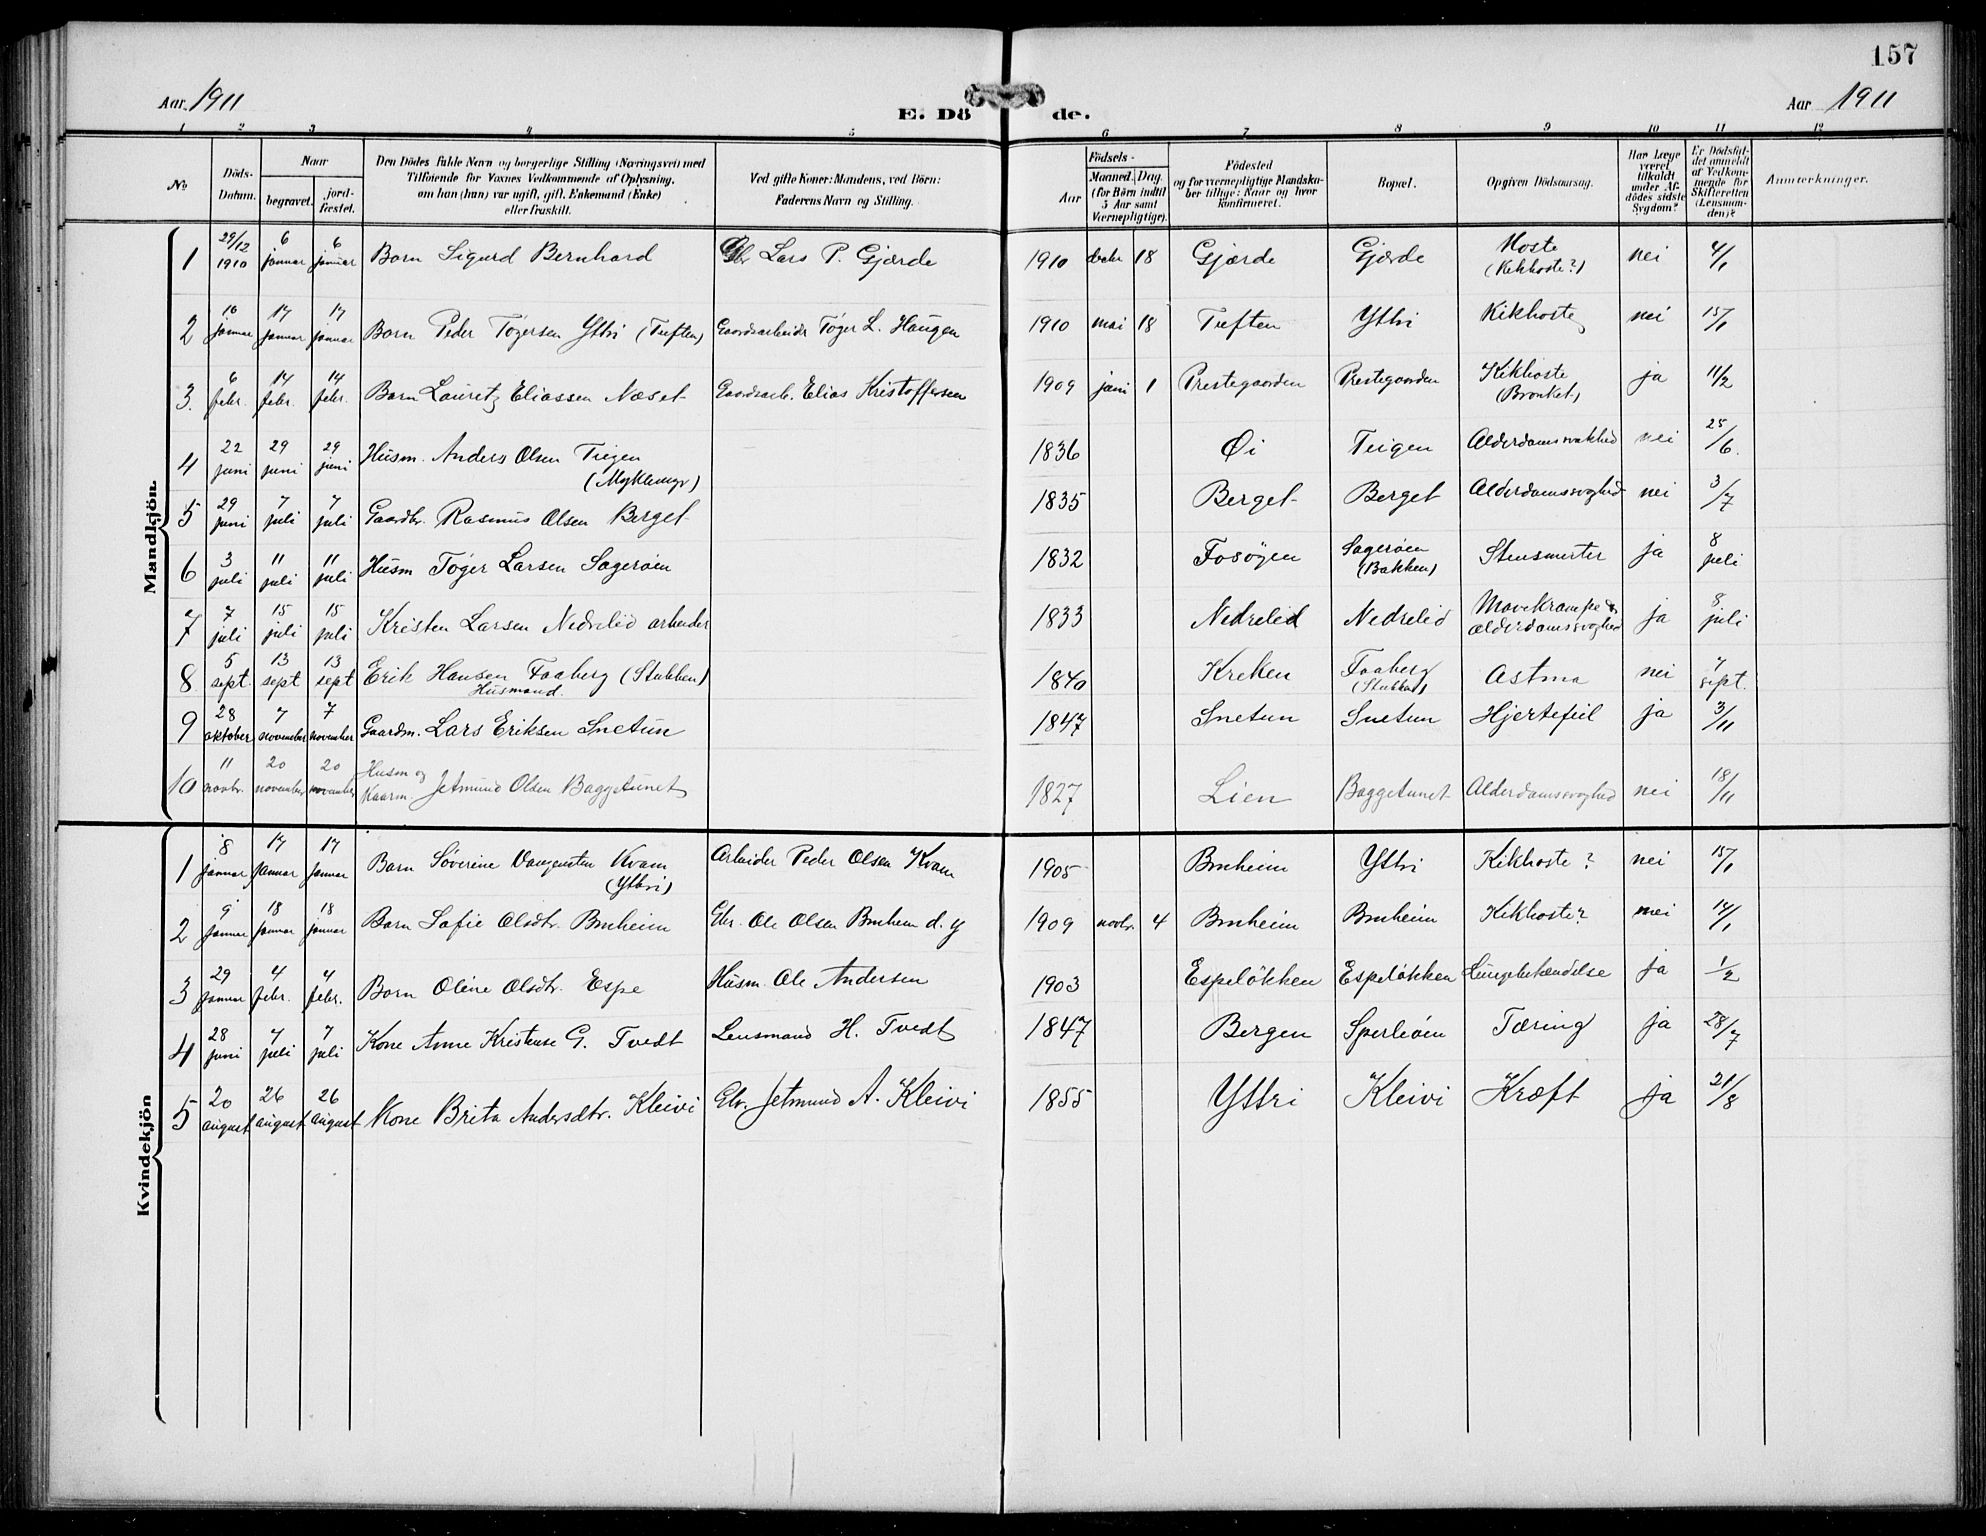 157
Aar 1911
E. Dö de.
Aar 1911
1 2 3 4 5 6 7 8 9 10 11 12
No
Döds-Datum.
Naar
begravet.
jord-fæstet.
Den Dödes fulde Navn og borgerlige Stilling (Næringsvei) med
Tilföiende for Voxnes Vedkommende af Oplysning,
om han (hun) var ugift, gift, Enkemand (Enke)
eller fraskilt.
Ved gifte Koner: Mandens, ved Börn:
Faderens Navn og Stilling.
Födsels-
Aar
Maaned. Dag.
(for Börn indtil
5 Aar samt
Værnepligtige).
Födested
og for værnepligtige Mandska-
ber tillige: Naar og hvor
konfirmeret.
Bopæl.
Opgiven Dödsaarsag.
Har Læge
været
tilkaldt
under Af-
dödes sidste
Sygdom?
Er Dödsfal-
det anmeldt
af Vedkom-
mende for
Skifteretten
(Lensman-
den)?
Anmærkninger.
Mandkjön.
1 29/12 1910 6 januar 6 januar Barn Sigurd Bernhard Gbr Lars P. Gjærde 1910 decbr 18 Gjærde Gjærde Hoste (Kikhoste?) nei 4/1
2 10 januar 17 januar 17 januar Barn Peder Tøgersen Yttri (Tuften) Gaardsarbeider Tøger L. Haugen 1910 mai 18 Tuften Yttri Kikhoste nei 15/1
3. 6 febr. 14 febr. 14 febr. Barn Lauretz Eliassen Næset Gaardsarb. Elias Kristoffersen 1909 juni 1 Prestegaarden Prestegaarden Kikhoste (Bronket) ja 11/2
4 22 juni 29 juni 29 juni Husm. Anders Olsen Teigen (Myklemyr) 1836 Øi Teigen Alderdomssvakhed nei 25/6.
5 29 juni 7 juli 7 juli Gaardbr. Rasmus Olsen Berget 1835 Berget Berget Alderdomssvaghed nei 3/7
6 3 juli 11 juli 11 juli Husm Tøger Larsen Sagerøen 1832 Fosøyen Sagerøen (Bakken) Stensmerter ja 8 juli
7 7 juli 15 juli 15 juli Kristen Larsen Nedrelid arbeider 1833 Nedrelid Nedrelid Mavekrampe & alderdomssvaghed ja 8 juli
8 5 sept. 13 sept 13 sept Erik Hansen Faaberg (Stubben) Husmand. 1840 Kreken Faaberg (Stubben) Astma nei 7 sept.
9 28 oktober 7 november 7 november Gaardm. Lars Eriksen Snetun 1847 Snetun Snetun Hjertefeil ja 3/11
10 11 novbr. 20 november 20 november Husm og Kaarm. Jetmund Olsen Baggetunet 1827 Lien Baggetunet Alderdomssvaghed nei 18/11
Kvindekjön
1 8 januar 17 januar 17 januar Barn Søverine Vangensten Kvam (Yttri) Arbeider Peder Olsen Kvam 1905 Bruheim Yttri Kikhoste? nei 15/1
2 9 januar 18 januar 18 januar Barn Sofie Olsdtr. Bruheim Gbr. Ole Olsen Bruheim d. y 1909 novbr. 4 Bruheim Bruheim Kikhoste? nei 14/1
3 29 januar 4 febr. 4 febr. Barn Oline Olsdtr. Espe Husm. Ole Andersen 1903 Espeløkken Espeløkken Lungebetændelse ja 1/2
4 28 juni 7 juli 7 juli Kone Anne Kristense G. Tvedt Lensmand H. Tvedt 1847 Bergen Sperleøen Tæring ja 28/7
5 20 august 26 august 26 august Kone Brita Andersdtr. Kleivi Gbr. Jetmund A. Kleivi 1855 Yttri Kleivi Kræft ja 21/8